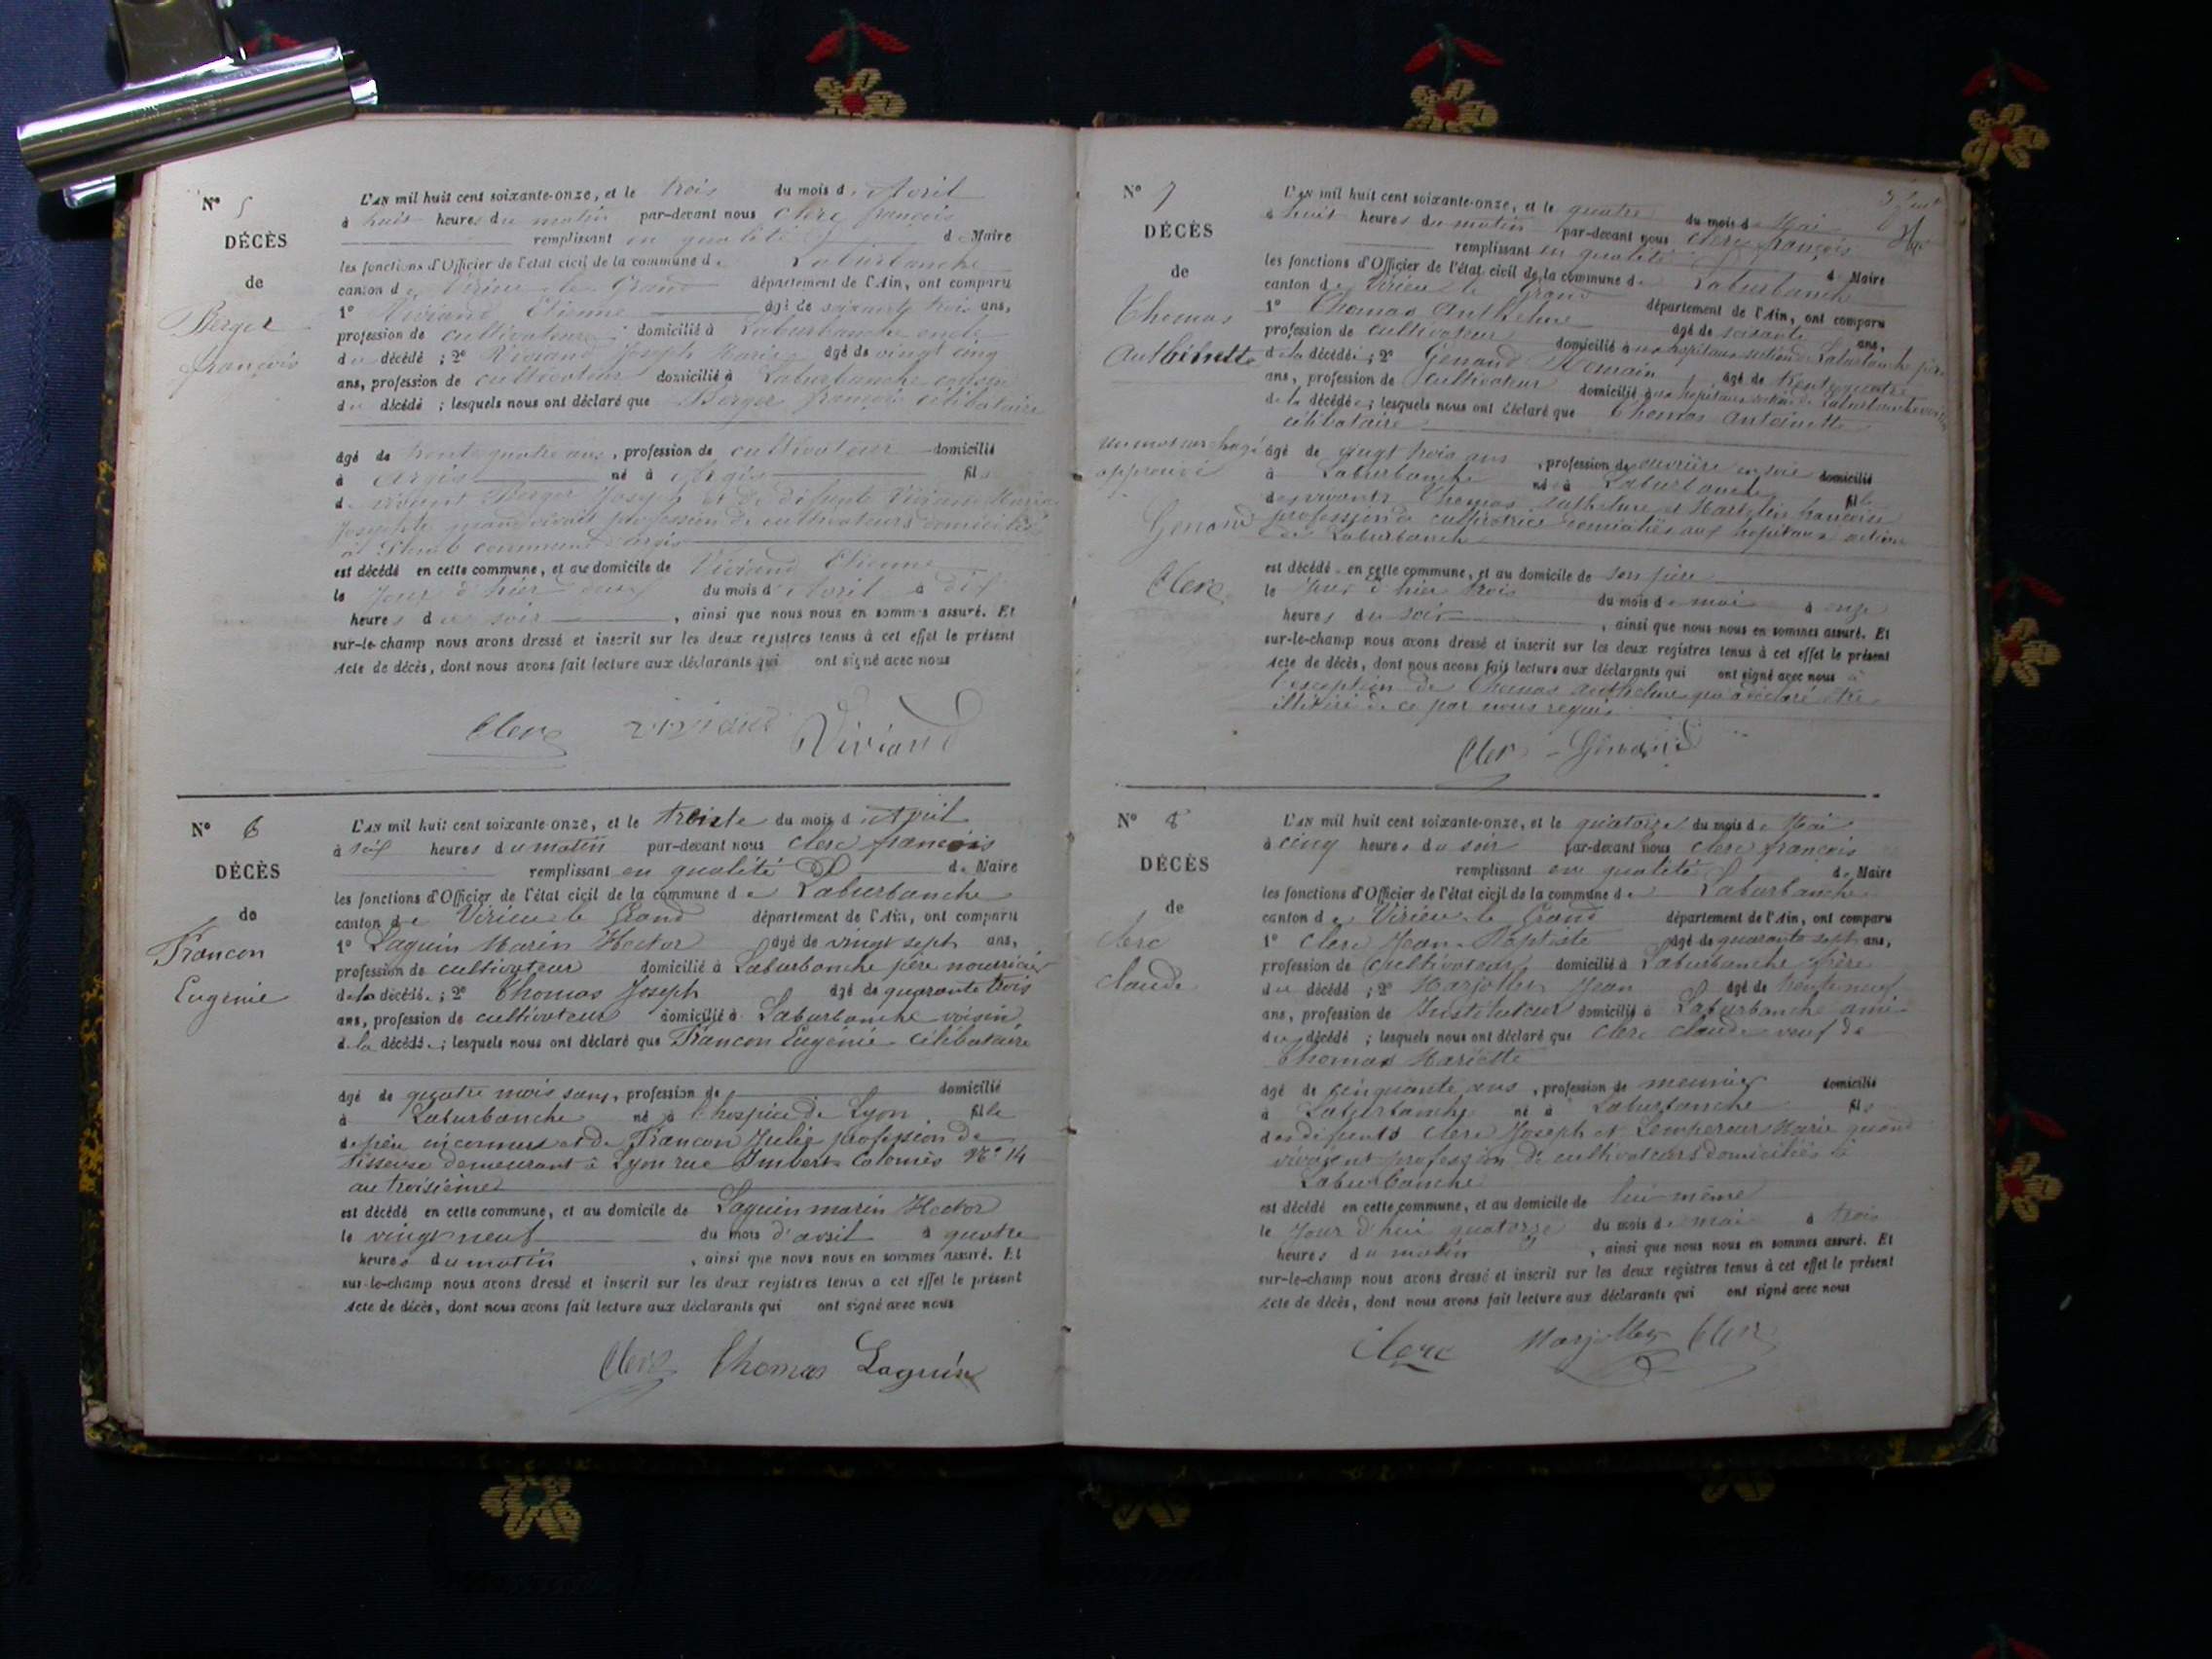 N° 5
DÉCÈS
de
Berger
françois
L'AN mil huit cent soixante-onze, et le trois du mois d'Avril
à huit heures du matin par-devant nous clerc françois
remplissant en qualité d Maire
les fonctions d'Officier de l'état civil de la commune de Laburbanche
canton de Virieu le Grand département de l'Ain, ont comparu
1° Viviand Etienne âgé de soixante trois ans,
profession de cultivateur domicilié à Laburbanche oncle
du décédé ; 2° Viviand Joseph Marie âgé de vingt cinq
ans, profession de cultivateur domicilié à Laburbanche cousin
du décédé ; lesquels nous ont déclaré que Berger françois célibataire
âgé de trente quatre ans, profession de cultivateur domicilié
à Argis né à Argis fils
de vivant Berger Joseph et de défunte Viviand Marie
Josephte quand vivait profession de cultivateurs domiciliés
à commune d'argis
est décédé en cette commune, et au domicile de Viviand Etienne
le jour d'hier deux du mois d'Avril à dix
heures du soir, ainsi que nous nous en sommes assuré. Et
sur-le-champ nous avons dressé et inscrit sur les deux registres tenus à cet effet le présent
Acte de décès, dont nous avons fait lecture aux déclarants qui ont signé avec nous
Clerc Viviand Viviand
N° 6
DÉCÈS
de
Francon
Eugénie
L'AN mil huit cent soixante-onze, et le trente du mois d'Avril
à six heures du matin par-devant nous clerc françois
remplissant en qualité de Maire
les fonctions d'Officier de l'état civil de la commune de Laburbanche
canton de Virieu le Grand département de l'Ain, ont comparu
1° Laguin Marin Hector âgé de vingt sept ans,
profession de cultivateur domicilié à Laburbanche père nourricier
de la décédée ; 2° Thomas Joseph âgé de quarante trois
ans, profession de cultivateur domicilié à Laburbanche voisin
de la décédée ; lesquels nous ont déclaré que Francon Eugénie célibataire
âgé de quatre mois sans, profession de domicilié
à Laburbanche né à l'hospice de Lyon fille
de père inconnus et de Francon Julie profession de
tisseuse demeurant à Lyon rue Imbert Colomès N° 14
au troisième
est décédé en cette commune, et au domicile de Laguin marin Hector
le vingt neuf du mois d'avril à quatre
heures du matin, ainsi que nous nous en sommes assuré. Et
sur-le-champ nous avons dressé et inscrit sur les deux registres tenus à cet effet le présent
Acte de décès, dont nous avons fait lecture aux déclarants qui ont signé avec nous
Clerc Thomas Laguin
N° 7
DÉCÈS
de
Thomas
Anthelmette
un mot surchagé
approuvé
Genand
Clerc
L'AN mil huit cent soixante-onze, et le quatre du mois de Mai
à huit heures du matin par-devant nous clerc françois
remplissant en qualité d Maire
les fonctions d'Officier de l'état civil de la commune de Laburbanche
canton de Virieu le Grand département de l'Ain, ont comparu
1° Thomas Anthelme âgé de soixante ans,
profession de cultivateur domicilié aux hopitaux section de Laburbanche père
de la décédée ; 2° Genand Romain âgé de trente quatre
ans, profession de cultivateur domicilié aux hopitaux section de Laburbanche
de la décédée ; lesquels nous ont déclaré que Thomas Antoinette
célibataire
âgé de vingt trois ans, profession de ouvrière en soie domicilié
à Laburbanche né à Laburbanche fille
des vivants Thomas Anthelme et françoise
profession de domiciliés aux hopitaux section
de Laburbanche
est décédé en cette commune, et au domicile de son père
le jour d'hier trois du mois de mai à onze
heures du soir, ainsi que nous nous en sommes assuré. Et
sur-le-champ nous avons dressé et inscrit sur les deux registres tenus à cet effet le présent
Acte de décès, dont nous avons fait lecture aux déclarants qui ont signé avec nous à
l'exception de Thomas Anthelme qui a déclaré être
illétéré de ce par nous requis
Clerc Genand
N° 8
DÉCÈS
de
clerc
claude
L'AN mil huit cent soixante-onze, et le quatorze du mois de Mai
à cinq heures du soir par-devant nous clerc françois
remplissant en qualité de Maire
les fonctions d'Officier de l'état civil de la commune de Laburbanche
canton de Virieu le Grand département de l'Ain, ont comparu
1° Clerc Jean-Baptiste âgé de quarante sept ans,
profession de cultivateur domicilié à Laburbanche frère
du décédé ; 2° Marjollet Jean âgé de trente neuf
ans, profession de Instituteur domicilié à Laburbanche ami
du décédé ; lesquels nous ont déclaré que clerc claude veuf de
Thomas Mariette
âgé de cinquante ans, profession de meunier domicilié
à Laburbanche né à Laburbanche fils
des défunts clerc Joseph et Lempereur Marie quand
vivaient profession de cultivateurs domiciliés à
Laburbanche
est décédé en cette commune, et au domicile de lui même
le jour d'hui quatorze du mois de mai à trois
heures du matin, ainsi que nous nous en sommes assuré. Et
sur-le-champ nous avons dressé et inscrit sur les deux registres tenus à cet effet le présent
Acte de décès, dont nous avons fait lecture aux déclarants qui ont signé avec nous
Clerc Marjollet Clerc